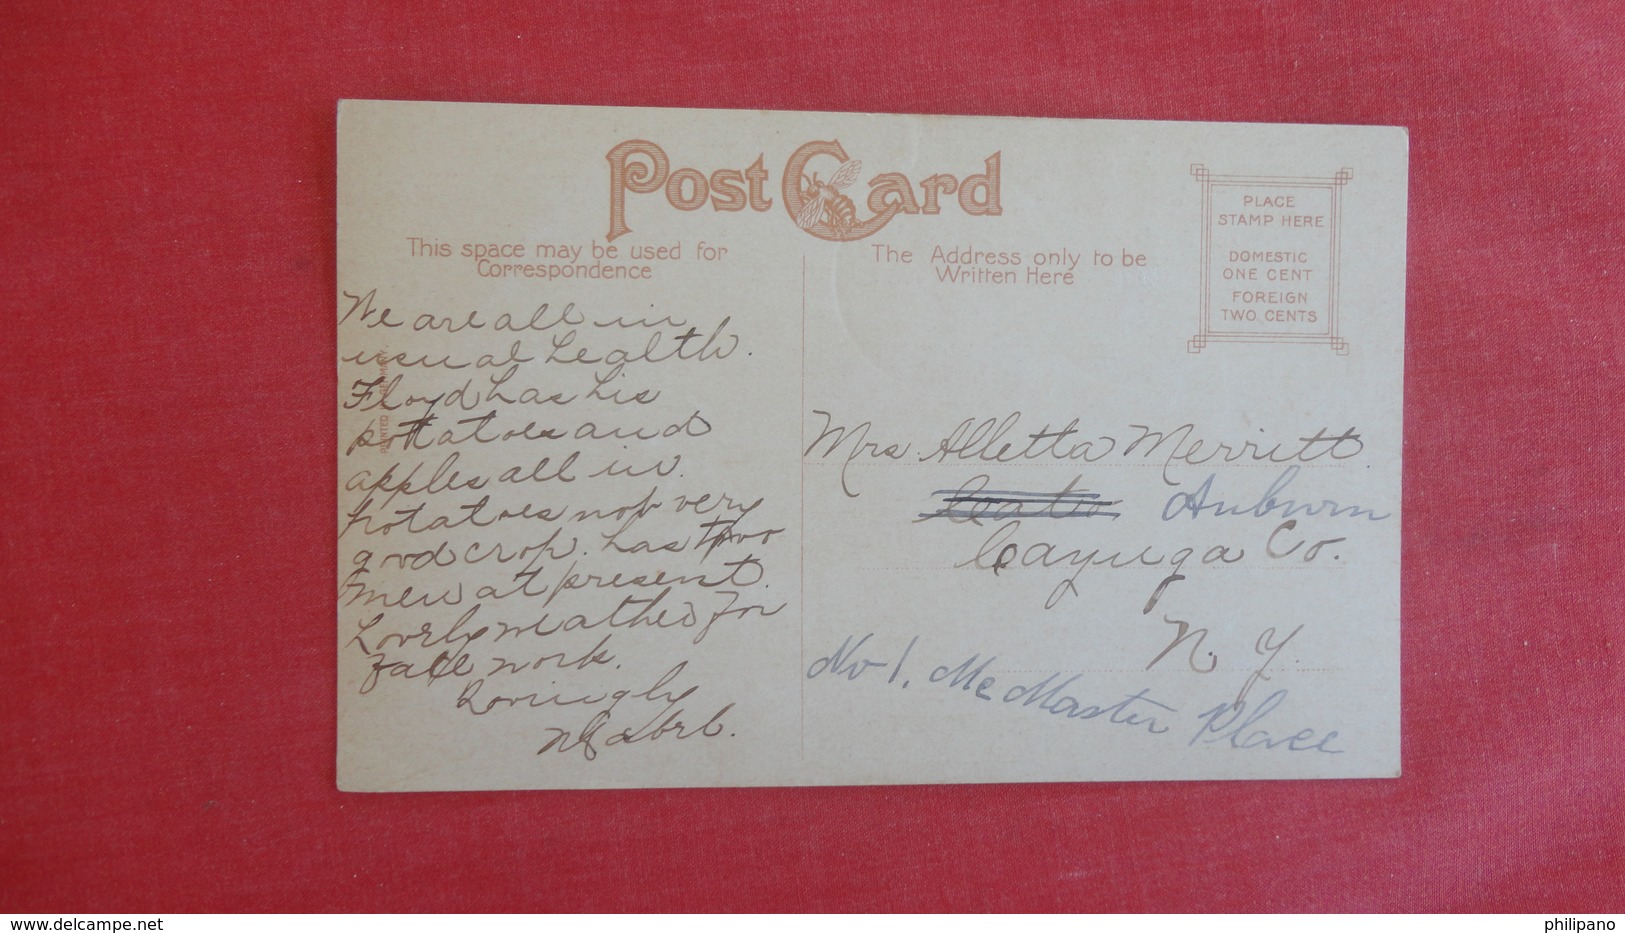 Post Card
This space may be used for
Correspondence
The Address only to be
Written Here
PLACE
STAMP HERE
DOMESTIC
ONE CENT
FOREIGN
TWO CENTS
We are all in
usual health.
Floyd has his
potatoes and
apples all in.
potatoes not very
good crop. has two
men at present.
Lovely weather for
fall work.
Lovingly
Mrs Alletta Merritt
Cato Auburn
Cayuga Co.
N. Y.
No 1. Mc Master Place
PRINTED
philipano